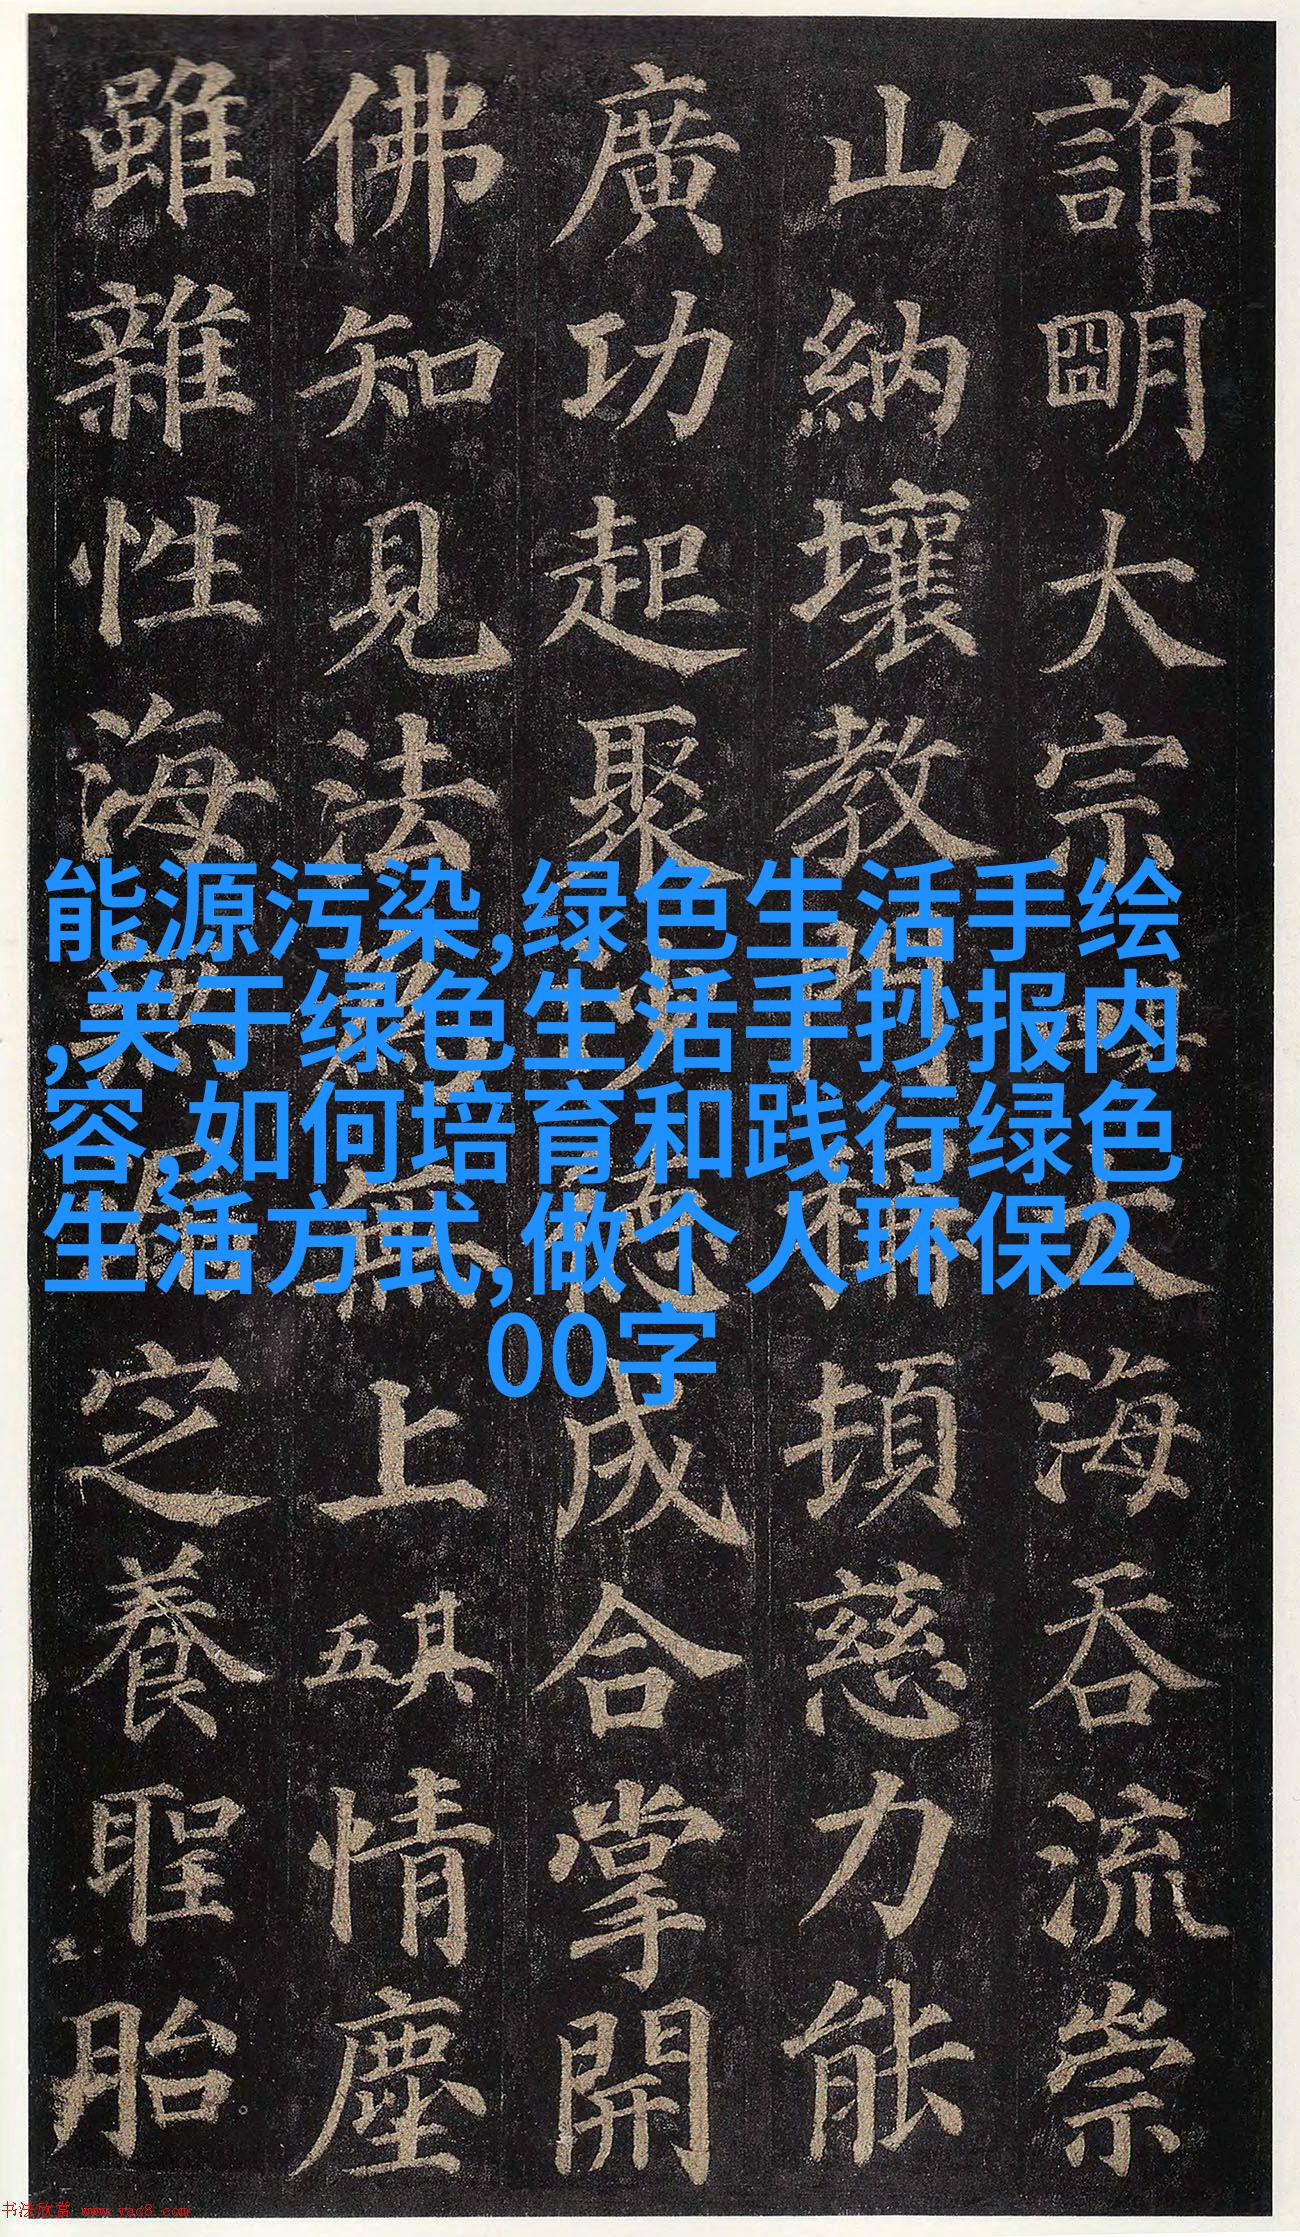 誰明大宗大海吞流崇
山納壤教門稱頓慈力能
廣功起聚沙德成合掌開
佛知見法為無上其五情塵
雖雜性海無定養聖胎
能源污染,绿色生活手绘
,关于绿色生活手抄报内
容,如何培育和践行绿色
生活方式,做个人环保2
00字
书法欣赏 www.yac8.com